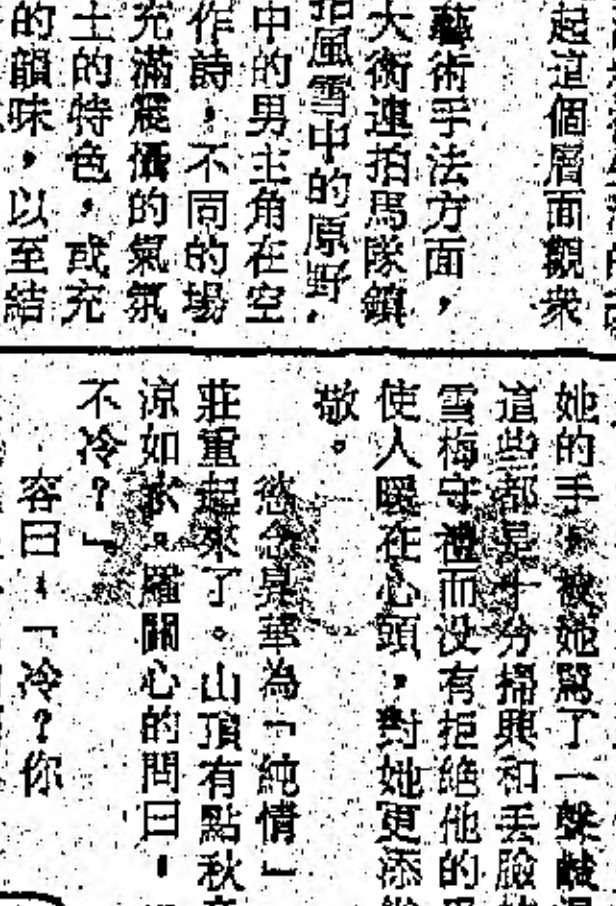 起這個層面觀衆
藝術手法方面，
大衛連拍馬隊鎮
拍風雪中的原野，
中的男主角在空
作詩，不同的場
充滿震懾的氣氛
土的特色，或充
的韻味，以至結
她的手，被她罵了一聲鹹濕
這些都是十分掃興和丟臉
雪梅守禮而没有拒絶他的
使人暖在心頭，對她更添
敬。
慾念昇華為「純情」
莊重起來了。山頂有點秋意
涼如水。羅關心的問曰，
不冷？」
容曰：「冷？你